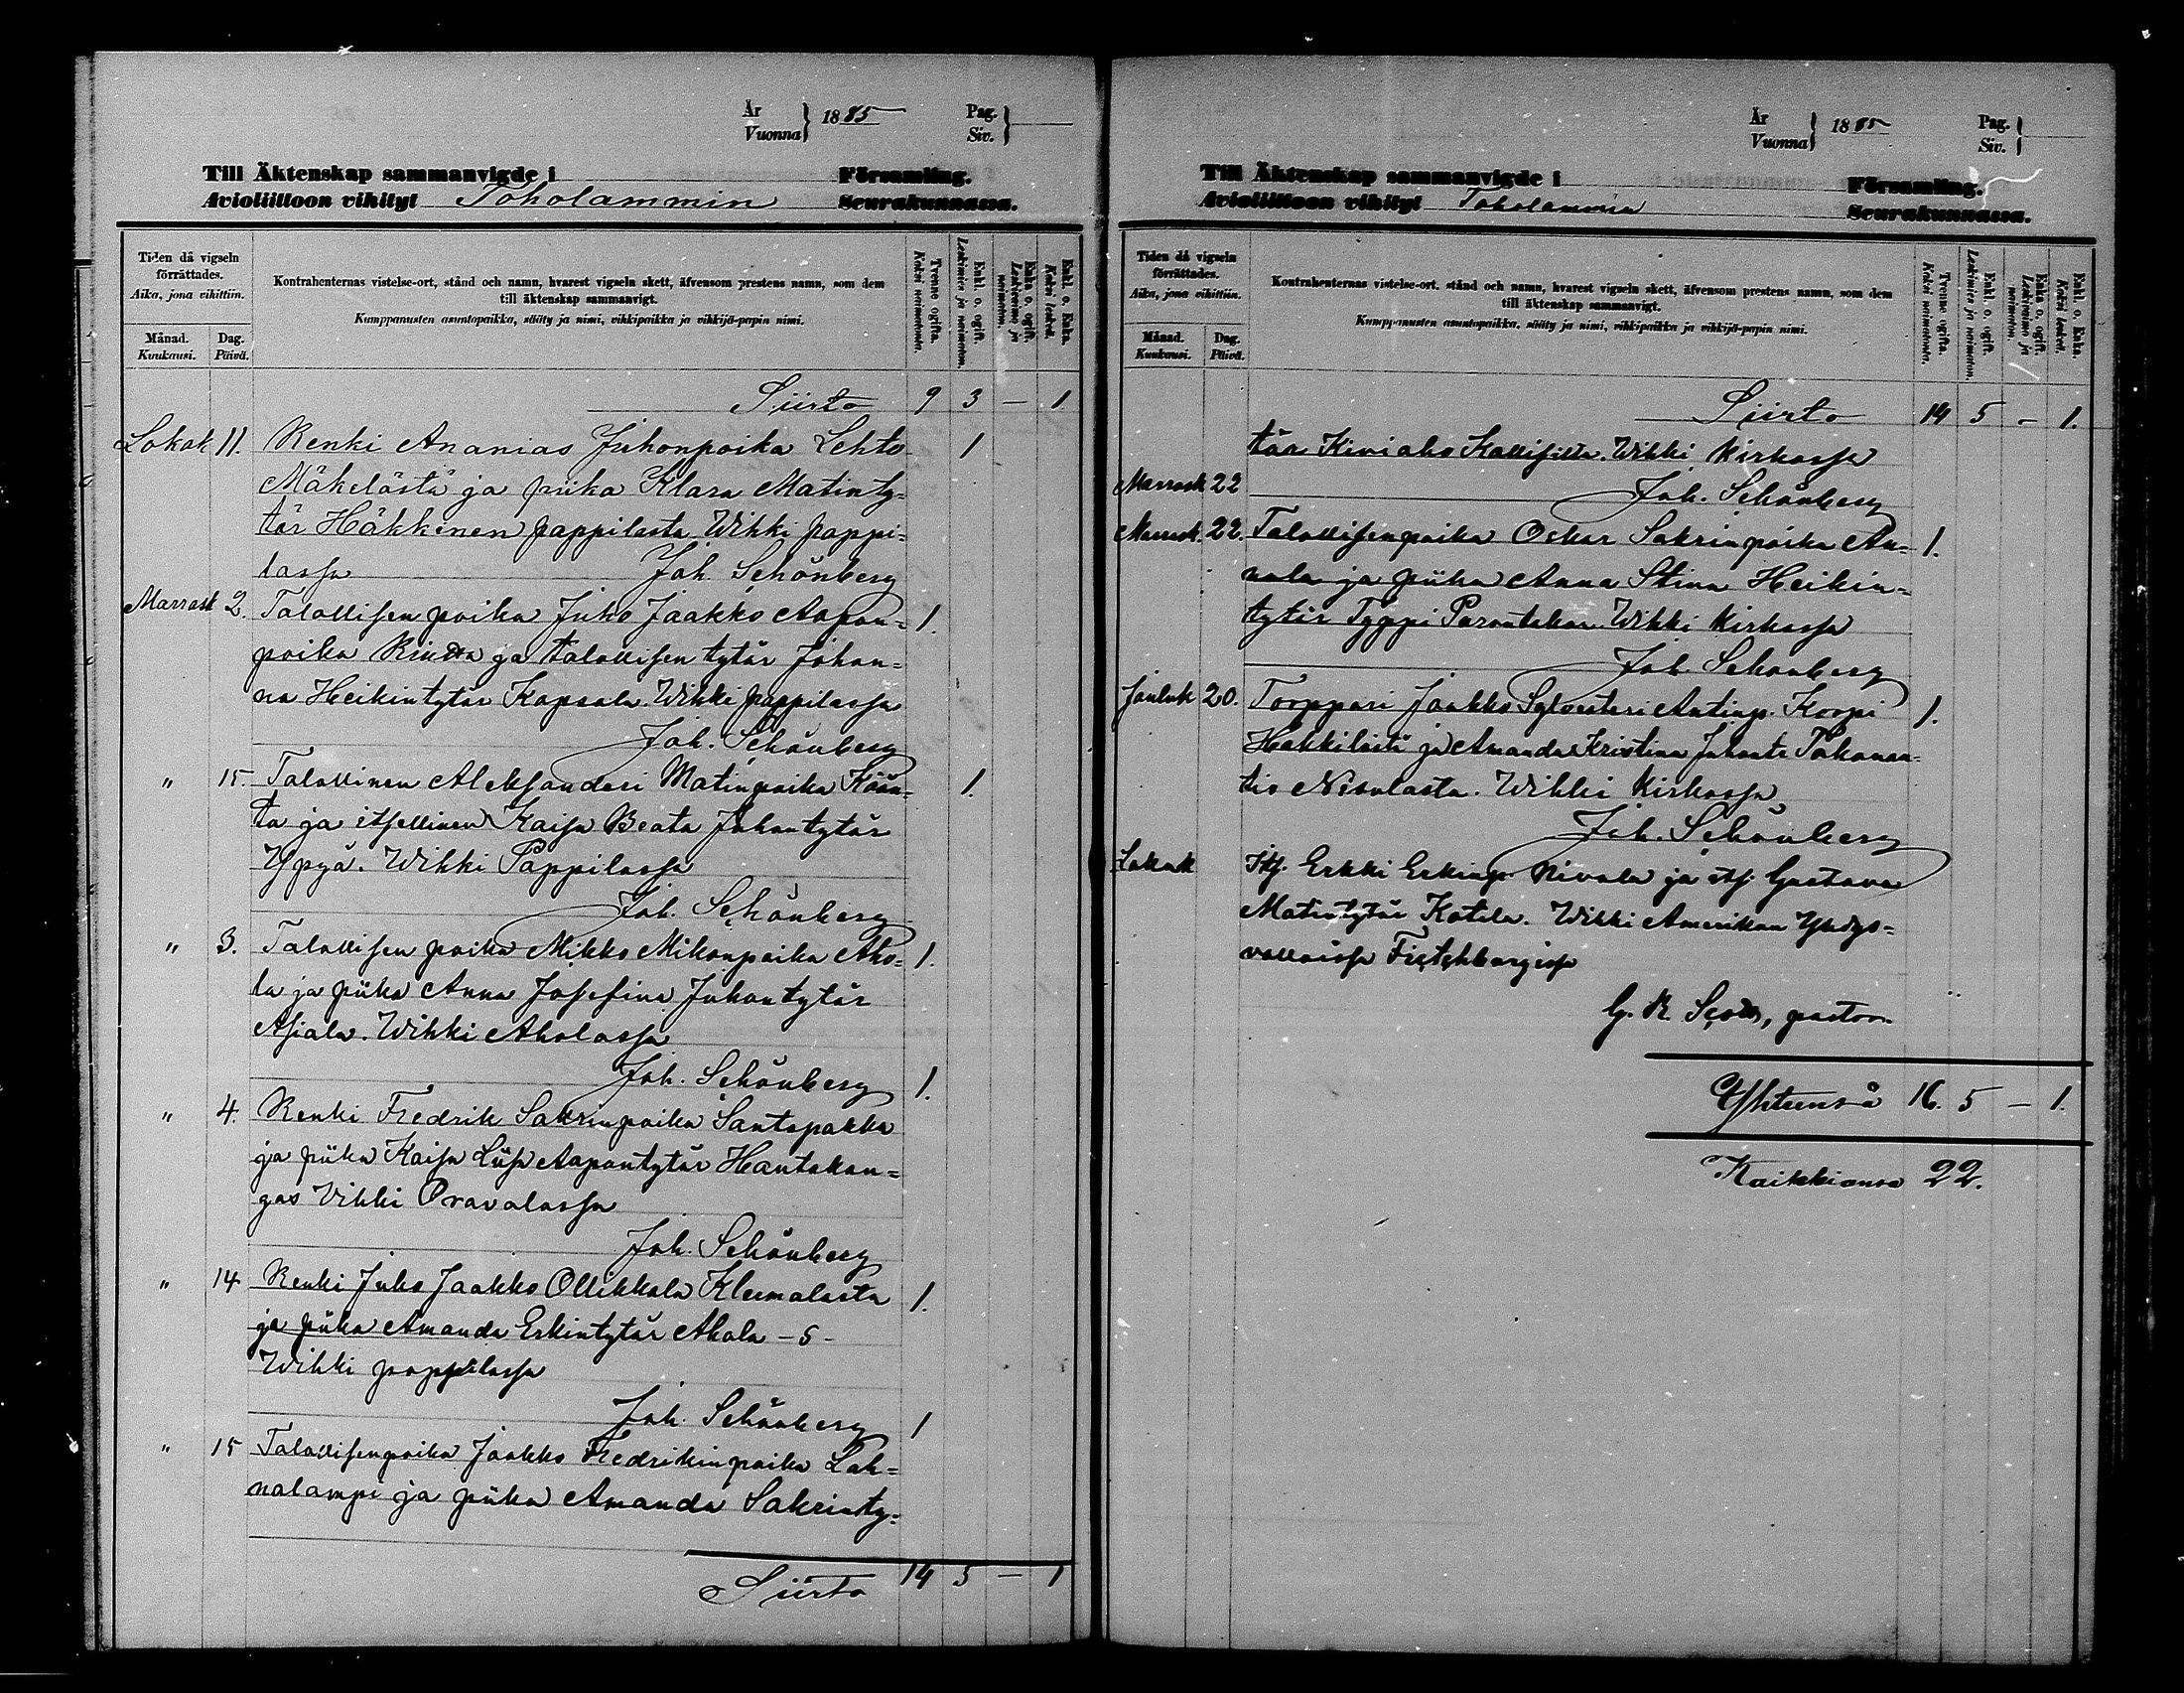 År
Vuonna } 1885
Pag.
Siv. }
Till Äktenskap sammanvigde i Församling.
Avioliittoon vihityt Toholammin Seurakunnassa.
Tiden då vigseln förrättades.
Aika, jona vihittiin.
Månad. Kuukausi.
Dag. Päivä.
Kontrahenternas vistelse-ort, stånd och namn, hvarest vigseln skett, äfvensom prestens namn, som dem
till äktenskap sammanvigt.
Kumppanusten asuntopaikka, sääty ja nimi, vihkipaikka ja vihkijä-papin nimi.
Tvenne ogifta. Kaksi naimatonta.
Enkl. o. ogift. Leskimies ja naimaton.
Enka o. ogift. Leskivaimo ja naimaton.
Enkl. o. Enka. Kaksi leskeä.
Siirto 9 3 — 1.
Lokak 11. Renki Ananias Juhonpoika Lehto 1
Mäkelästä ja piika Klara Matinty=
tär Häkkinen pappilasta Wihki pappi=
lassa Joh. Schönberg
Marrask 2. Talollisen poika Juho Jaakko Aapon= 1.
poika Rinta ja talollisen tytär Johan=
na Heikintytär Kapsala. Wihki pappilassa
Joh. Schönberg
" 15. Talollinen Aleksanderi Matinpoika Kään= 1.
ta ja itsellinen Kaisa Beata Juhontytär
Ypyä. Wihki Pappilassa
Joh. Schönberg
" 3. Talollisen poika Mikko Mikonpoika Aho= 1.
la ja piika Anna Josefina Juhontytär
Asiala. Wihki Aholassa
Joh. Schönberg 1.
" 4. Renki Fredrik Sakrinpoika Santapakka
ja piika Kaisa Liisa Aapontytär Hantakan=
gas Vihki Oravalassa
Joh. Schönberg
" 14 Renki Juho Jaakko Ollikkala Kleemalasta 1.
ja piika Amanda Erkintytär Ahola -s-
Wihki pappilassa
Joh. Schönberg 1
" 15 Talollisenpoika Jaakko Fredrikinpoika Lah=
nalampi ja piika Amanda Sakrinty=
Siirto 14 5 — 1
År
Vuonna } 1885
Pag.
Siv. }
Till Äktenskap sammanvigde i Församling.
Avioliittoon vihityt Toholammin Seurakunnassa.
Tiden då vigseln förrättades.
Aika, jona vihittiin.
Månad. Kuukausi.
Dag. Päivä.
Kontrahenternas vistelse-ort, stånd och namn, hvarest vigseln skett, äfvensom prestens namn, som dem
till äktenskap sammanvigt.
Kumppanusten asuntopaikka, sääty ja nimi, vihkipaikka ja vihkijä-papin nimi.
Tvenne ogifta. Kaksi naimatonta.
Enkl. o. ogift. Leskimies ja naimaton.
Enka o. ogift. Leskivaimo ja naimaton.
Enkl. o. Enka. Kaksi leskeä.
Siirto 14 5 – 1.
tär Kiviaho Wihki Kirkossa
Marrask 22 Joh. Schönberg
Marrask. 22. Talollisenpoika Oskar Sakrinpoika An= 1.
nala ja piika Anna Stina Heikin=
tytär Typpi Wihki Kirkossa
Joh. Schönberg
Jouluk 20. Torppari Jaakko Sylvesteri Antinp. Korpi 1.
ja Amanda Kristina
Wihki Kirkossa
Joh. Schönberg
Lokak Itj. Erkki Erkinp. Nivala ja itj. Gustava
Matintytär Kotila. Wihki Amerikan Yhdys=
valloissa
G. R. pastor.
Yhteensä 16. 5 — 1.
Kaikkiansa 22.